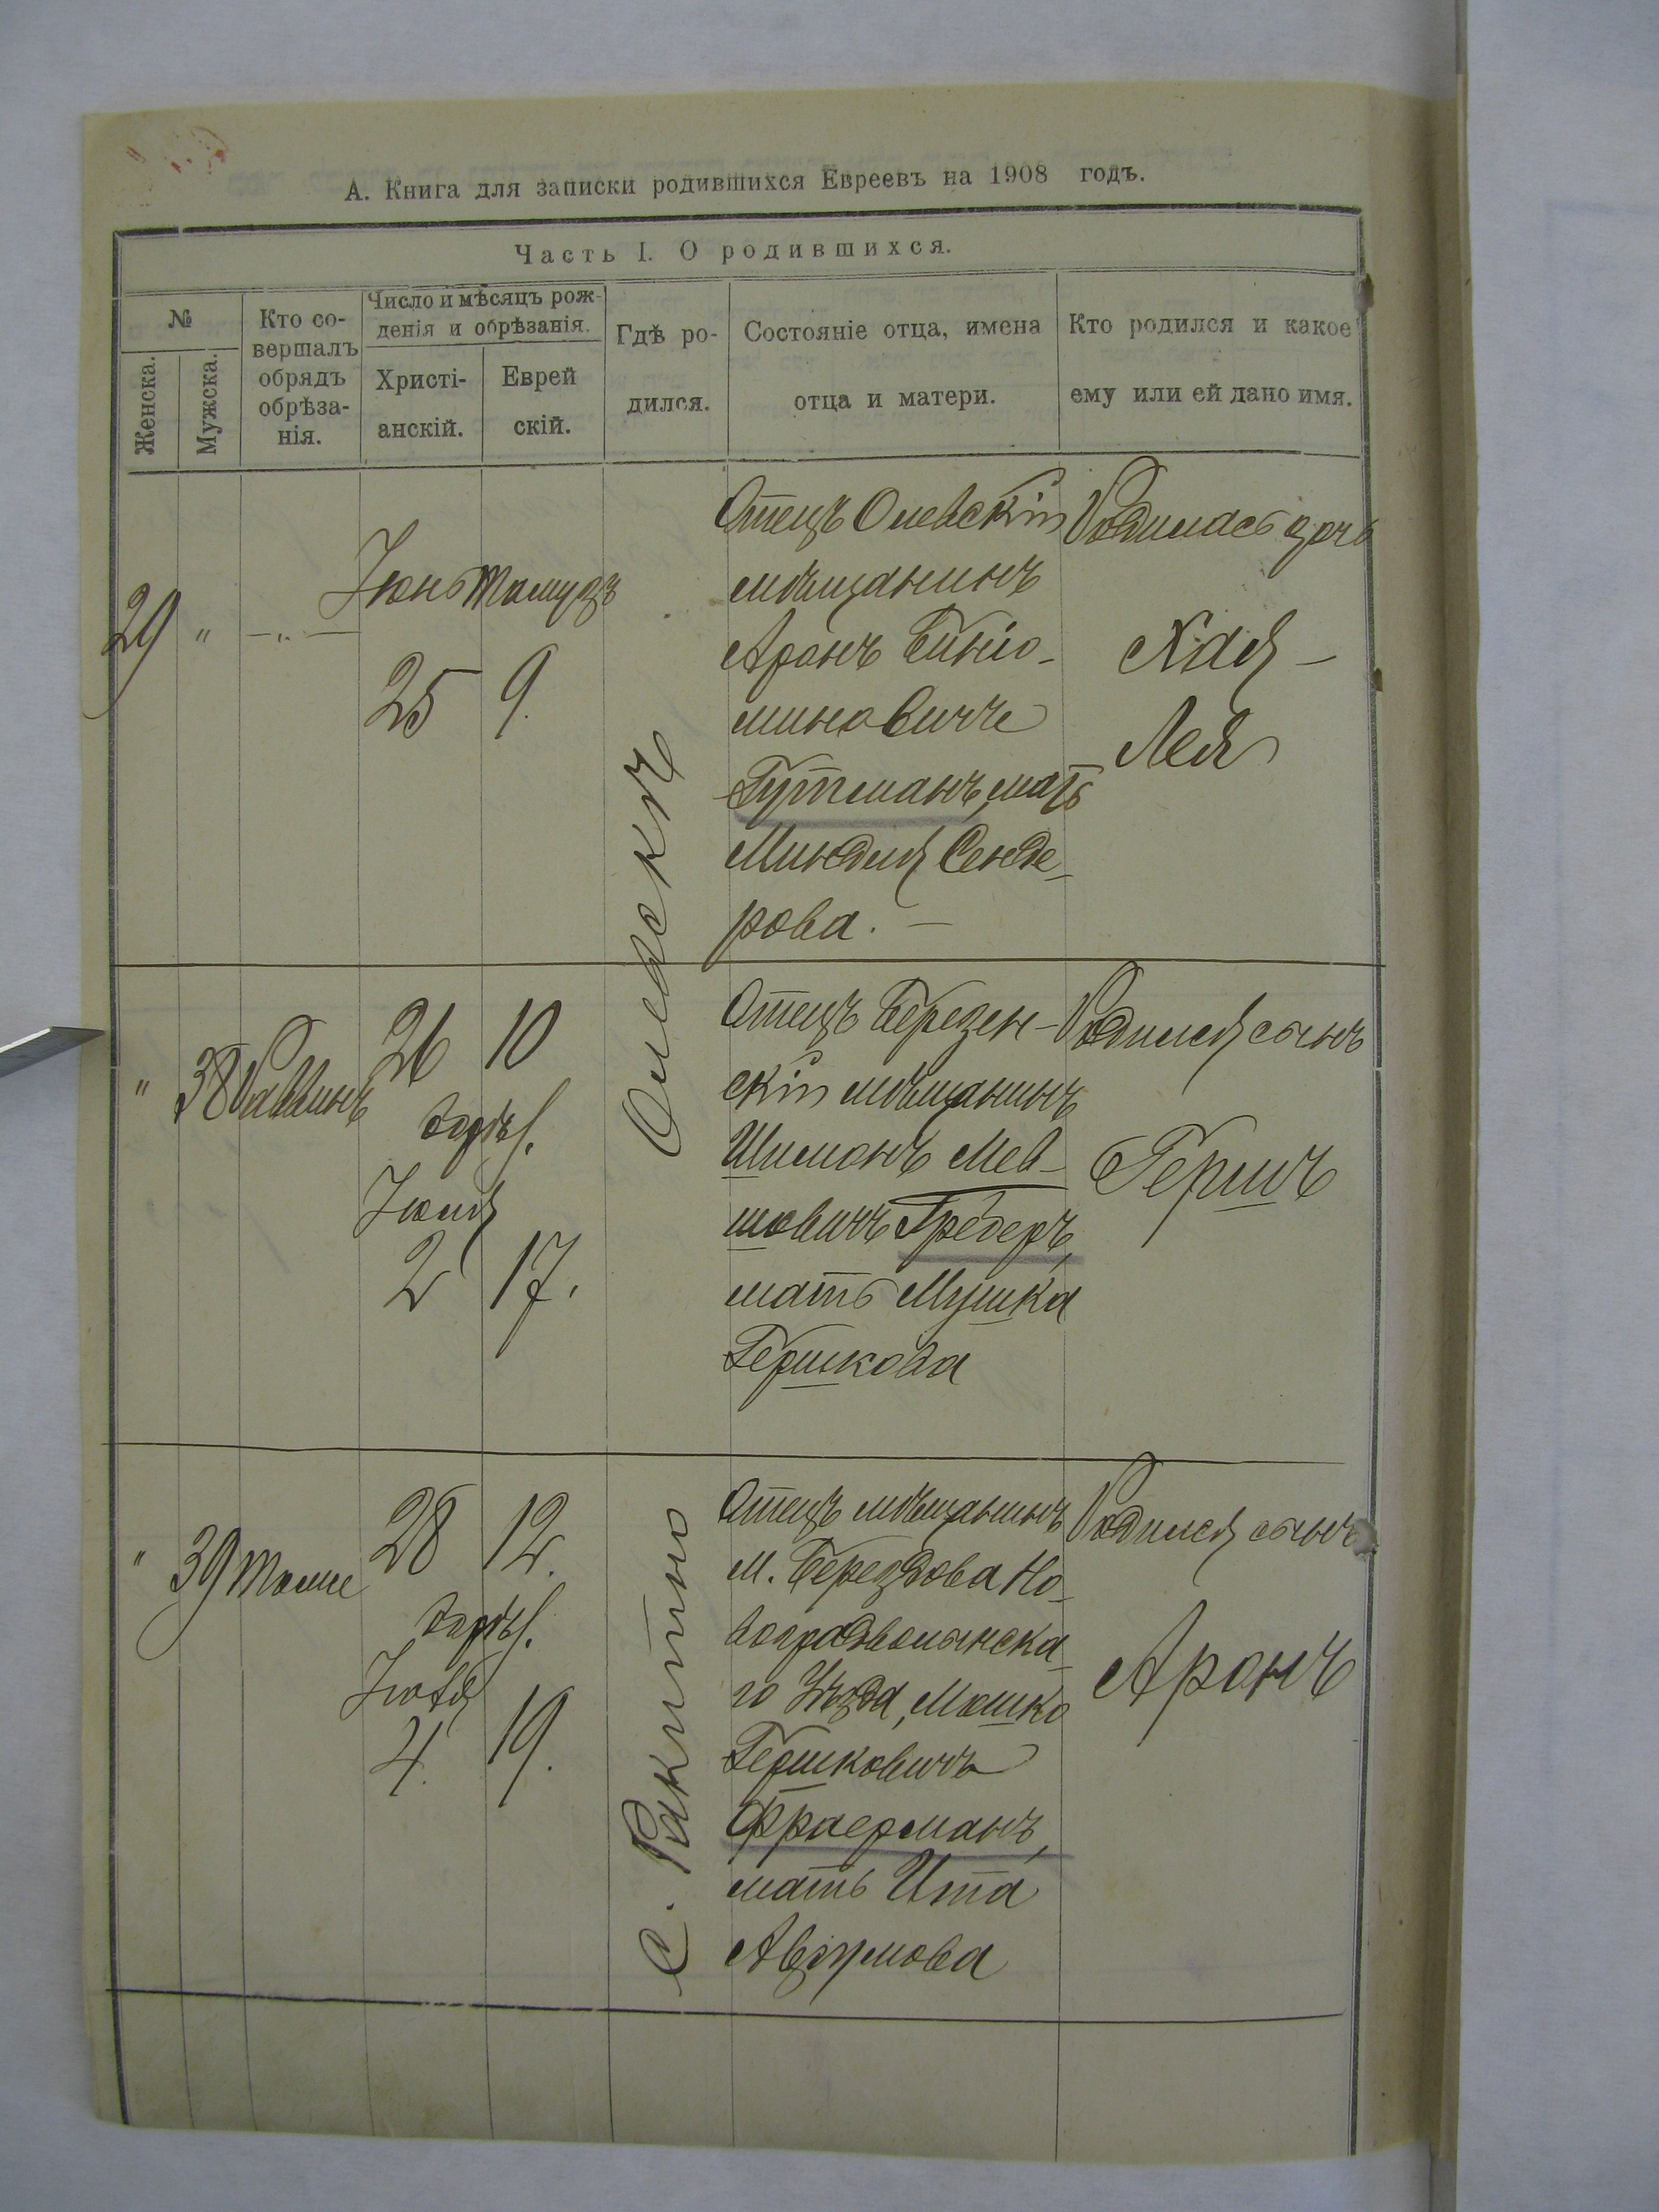 А. Книга для записки родившихся Евреевъ на 1908 годъ.
Часть I. О родившихся.
№
Женска.
Мужска.
Кто со-
вершалъ
обрядъ
обрѣза-
нія.
Число и мѣсяцъ рож-
денія и обрѣзанія.
Христі-
анскій.
Еврей
скій.
Гдѣ ро-
дился.
Состояніе отца, имена
отца и матери.
Кто родился и какое
ему или ей дано имя.
29 " —"—
Іюнь Тамузъ
25 9.
Олевскъ
Отецъ Олевскій
мѣщанинъ
Аронъ Бинiо-
миновичъ
Гутманъ, мать
Миндля Сенде-
рова. —
Родилась дочь
Хая —
Лея
" 38 Раввинъ
26 10
обрѣз.
Іюля
2 17.
Отецъ Березен-
скій мѣщанинъ
Шимонъ Мев-
шовичъ Гредеръ,
мать Мушка
Гершкова
Родился сынъ
Гершъ
" 39 Тоже
28 12.
обрѣз.
Іюля
4. 19.
с. Ракитно
Отецъ мѣщанинъ
м. Берездова Но-
воградволынска-
го Уѣзда, Мошко
Гершковичъ
Фраерманъ,
мать Ита
Аврумова
Родился сынъ
Аронъ